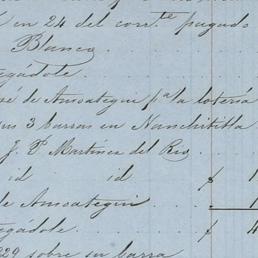 en 24 del corr.te pagado
Blanco
egándole
sé de Ansoategui pa la lotería
us 3 barras en Nanchititla
J. P. Martinez del Rio
id id $ 1
de Ansoategui 1
egándole $ 4
229 sobre su barra